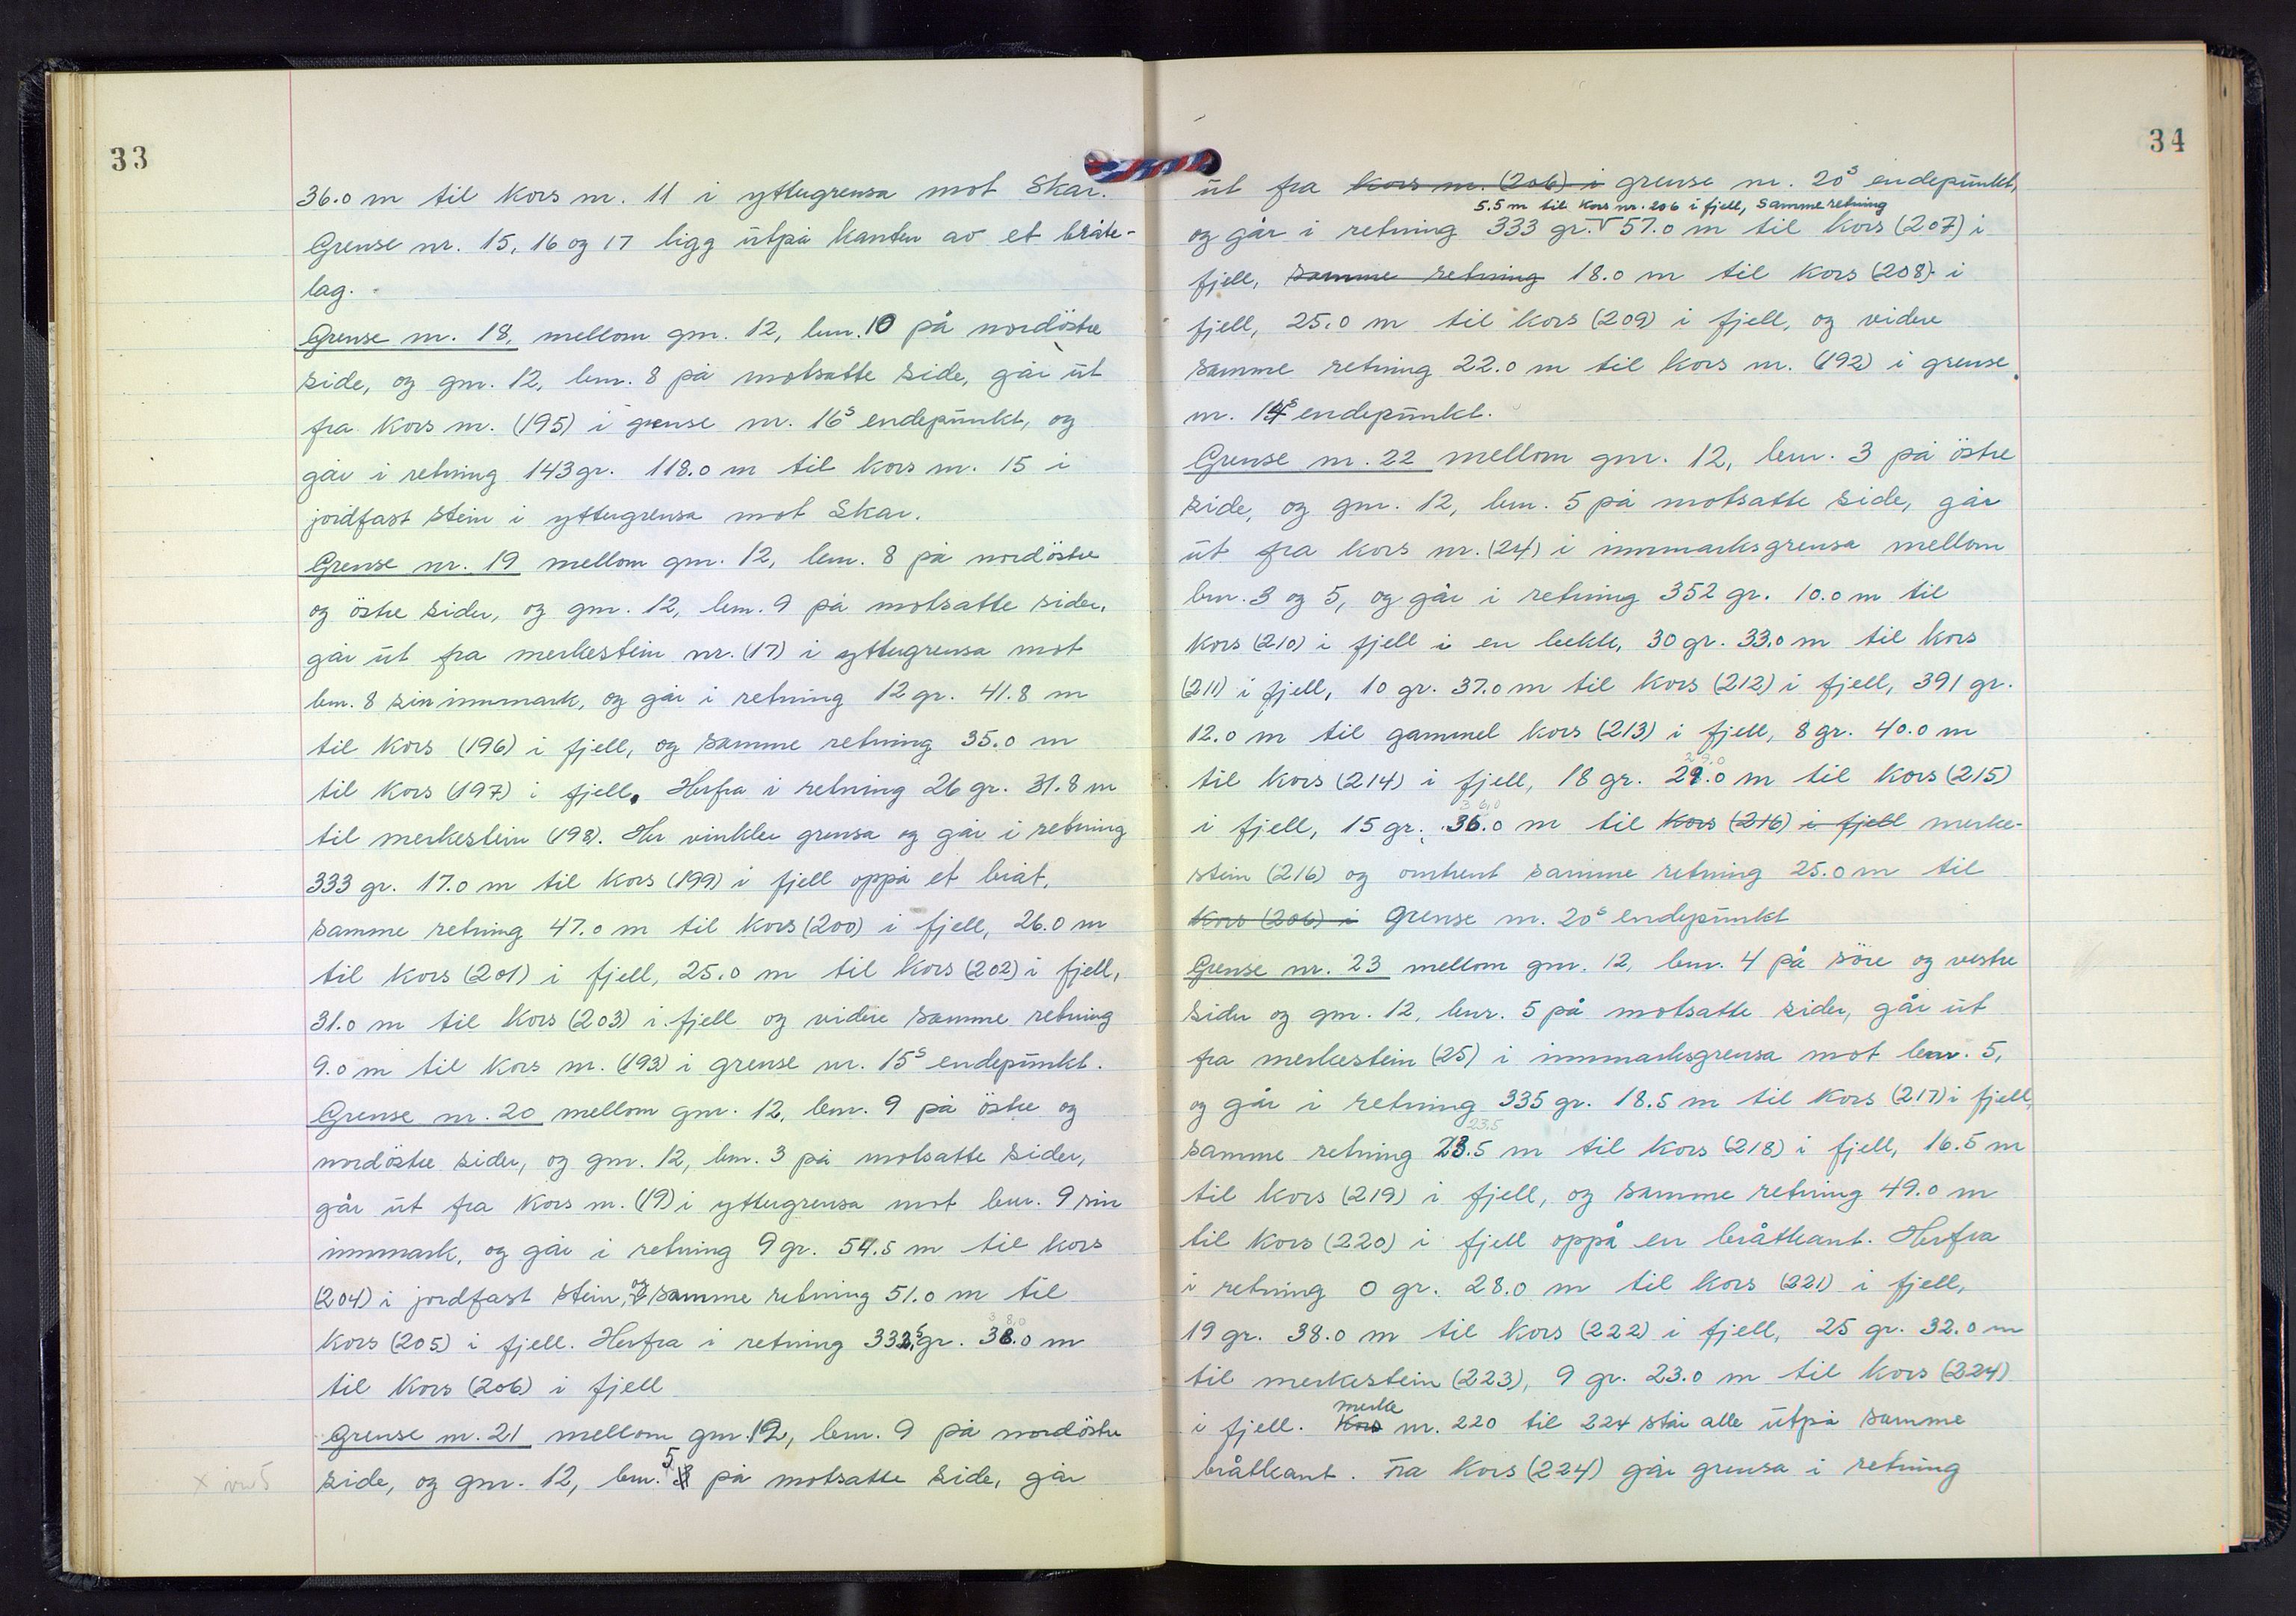 33
36.0 m til kors nr. 11 i yttergrensa mot Skar.
Grense nr. 15, 16 og 17 ligg utpå kanten av et bråte-
lag.
Grense nr. 18, mellom gnr. 12, bnr. 10 på nordöstre
side, og gnr. 12, bnr. 8 på motsatte side, går ut
fra kors nr. (195) i grense nr. 16s endepunkt, og
går i retning 143 gr. 118.0 m til kors nr. 15 i
jordfast stein i yttergrensa mot Skar.
Grense nr. 19 mellom gnr. 12, bnr. 8 på nordöstre
og östre sider, og gnr. 12, bnr. 9 på motsatte sider,
går ut fra merkestein nr. (17) i yttergrensa mot
bnr. 8 sin innmark, og går i retning 12 gr. 41.8 m
til kors (196) i fjell, og samme retning 35.0 m
til kors (197) i fjell. Herfra i retning 26 gr. 31.8 m
til merkestein (198). Her vinkler grensa og går i retning
333 gr. 17.0 m til kors (199) i fjell oppå et bråt,
samme retning 47.0 m til kors (200) i fjell, 26.0 m
til kors (201) i fjell, 25.0 m til kors (202) i fjell,
31.0 m til kors (203) i fjell og videre samme retning
9.0 m til kors nr. (193) i grense nr. 15s endepunkt.
Grense nr. 20 mellom gnr. 12, bnr. 9 på östre og
nordöstre sider, og gnr. 12, bnr. 3 på motsatte sider,
går ut fra kors nr. (19) i yttergrensa mot bnr. 9 sin
innmark, og går i retning 9 gr. 54.5 m til kors
(204) i jordfast stein, og samme retning 51.0 m til
38.0
kors (205) i fjell. Herfra i retning gr. 38.0 m
til kors (206) i fjell
Grense nr. 21 mellom gnr. 12, bnr. 9 på nordöstre
side, og gnr. 12, bnr. 5 på motsatte side, går
34
ut fra kors nr. (206) i grense nr. 20s endepunkt,
5.5 m til kors nr. 206 i fjell, samme retning
og går i retning 333 gr. 57.0 m til kors (207) i
fjell, samme retning 18.0 m til kors (208) i
fjell, 25.0 m til kors (209) i fjell, og videre
samme retning 22.0 m til kors nr. (192) i grense
nr. 14s endepunkt.
Grense nr. 22 mellom gnr. 12, bnr. 3 på östre
side, og gnr. 12, bnr. 5 på motsatte side, går
ut fra kors nr. (24) i innmarksgrensa mellom
bnr. 3 og 5, og går i retning 352 gr. 10.0 m til
kors (210) i fjell i en bekk, 30 gr. 33.0 m til kors
(211) i fjell, 10 gr. 37.0 m til kors (212) i fjell, 391 gr.
12.0 m til gammel kors (213) i fjell, 8 gr. 40.0 m
29.0
til kors (214) i fjell, 18 gr. 29.0 m til kors (215)
36.0
i fjell, 15 gr. 36.0 m til kors (216) i fjell merke-
stein (216) og omtrent samme retning 25.0 m til
kors (206) i grense nr. 20s endepunkt
Grense nr. 23 mellom gnr. 12, bnr. 4 på söre og vestre
sider og gnr. 12, bnr. 5 på motsatte sider, går ut
fra merkestein (25) i innmarksgrensa mot bnr. 5,
og går i retning 335 gr. 18.5 m til kors (217) i fjell,
23.5
samme retning 23.5 m til kors (218) i fjell, 16.5 m
til kors (219) i fjell, og samme retning 49.0 m
til kors (220) i fjell oppå en bråtkant. Herfra
i retning 0 gr. 28.0 m til kors (221) i fjell,
19 gr. 38.0 m til kors (222) i fjell, 25 gr. 32.0 m
til merkestein (223), 9 gr. 23.0 m til kors (224)
merke
i fjell. Kors nr. 220 til 224 står alle utpå samme
bråtkant. Fra kors (224) går grensa i retning